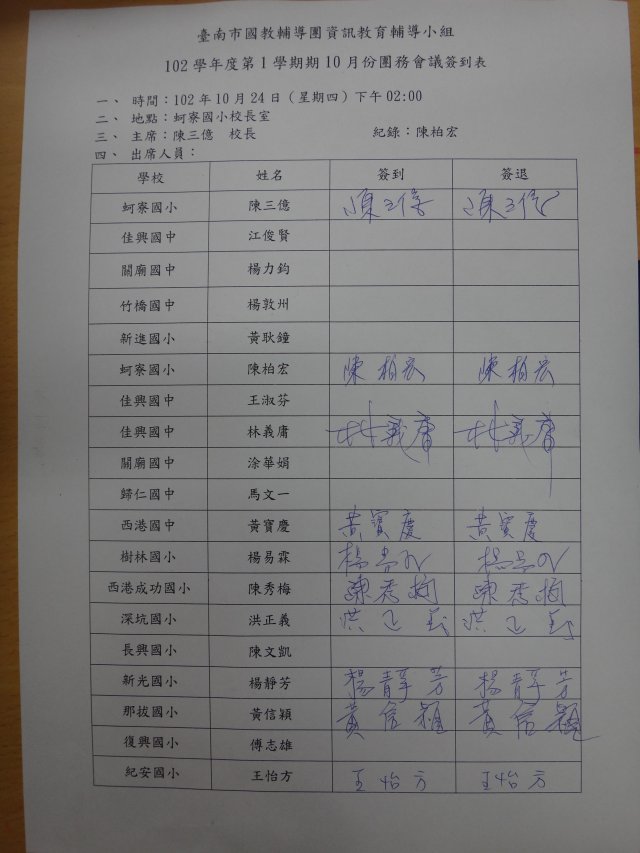 臺南市國教輔導團資訊教育輔導小組
102 學年度第 1 學期期 10 月份團務會議簽到表
一、 時間：102 年 10 月 24 日（星期四）下午 02:00
二、 地點：蚵寮國小校長室
三、 主席：陳三億 校長 紀錄：陳柏宏
四、 出席人員：
學校 姓名 簽到 簽退
蚵寮國小 陳三億 陳三億 陳三億
佳興國中 江俊賢
關廟國中 楊力鈞
竹橋國中 楊敦州
新進國小 黃耿鐘
蚵寮國小 陳柏宏 陳柏宏 陳柏宏
佳興國中 王淑芬
佳興國中 林義庸 林義庸 林義庸
關廟國中 涂華娟
歸仁國中 馬文一
西港國中 黃寶慶 黃寶慶 黃寶慶
樹林國小 楊易霖 楊易霖 楊易霖
西港成功國小 陳秀梅 陳秀梅 陳秀梅
深坑國小 洪正義 洪正義 洪正義
長興國小 陳文凱
新光國小 楊靜芳 楊靜芳 楊靜芳
那拔國小 黃信穎 黃信穎 黃信穎
復興國小 傅志雄
紀安國小 王怡方 王怡方 王怡方